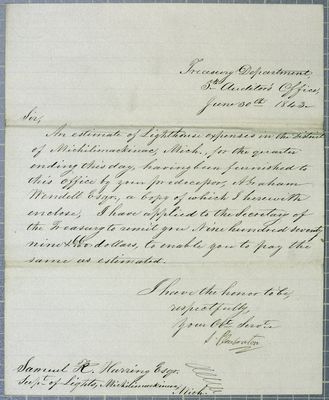 Treasury Department,
5th Auditor's Office,
June 30th 1843.
Sir,
An estimate of Lighthouse expenses in the District
of Michilimackinac, Mich., for the quarter
ending this day, having been furnished to
this office by your predecessor, Abraham
Wendell Esqr, a copy of which I herewith
enclose, I have applied to the Secretary of
the Treasury to remit you Nine hundred seventy
nine dollars, to enable you to pay the
same as estimated.
I have the honor to be,
respectfully,
your Obt. Servt.
S. Pleasonton
Samuel K. Haring Esqr.
Supt. of Lights, Michilimackinac,
Mich.